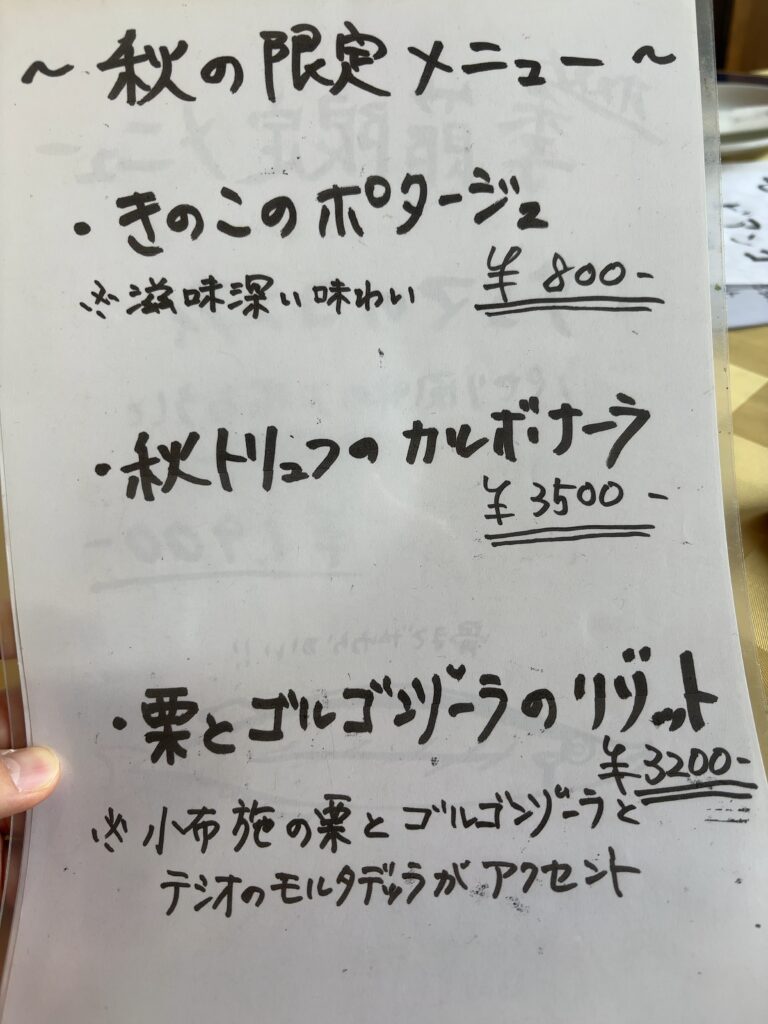 ～秋の限定メニュー～
・きのこのポタージュ
※滋味深い味わい ¥800-
・秋トリュフのカルボナーラ
¥3500-
・栗とゴルゴンゾーラのリゾット
¥3200-
※小布施の栗とゴルゴンゾーラと
テシオのモルタデッラがアクセント